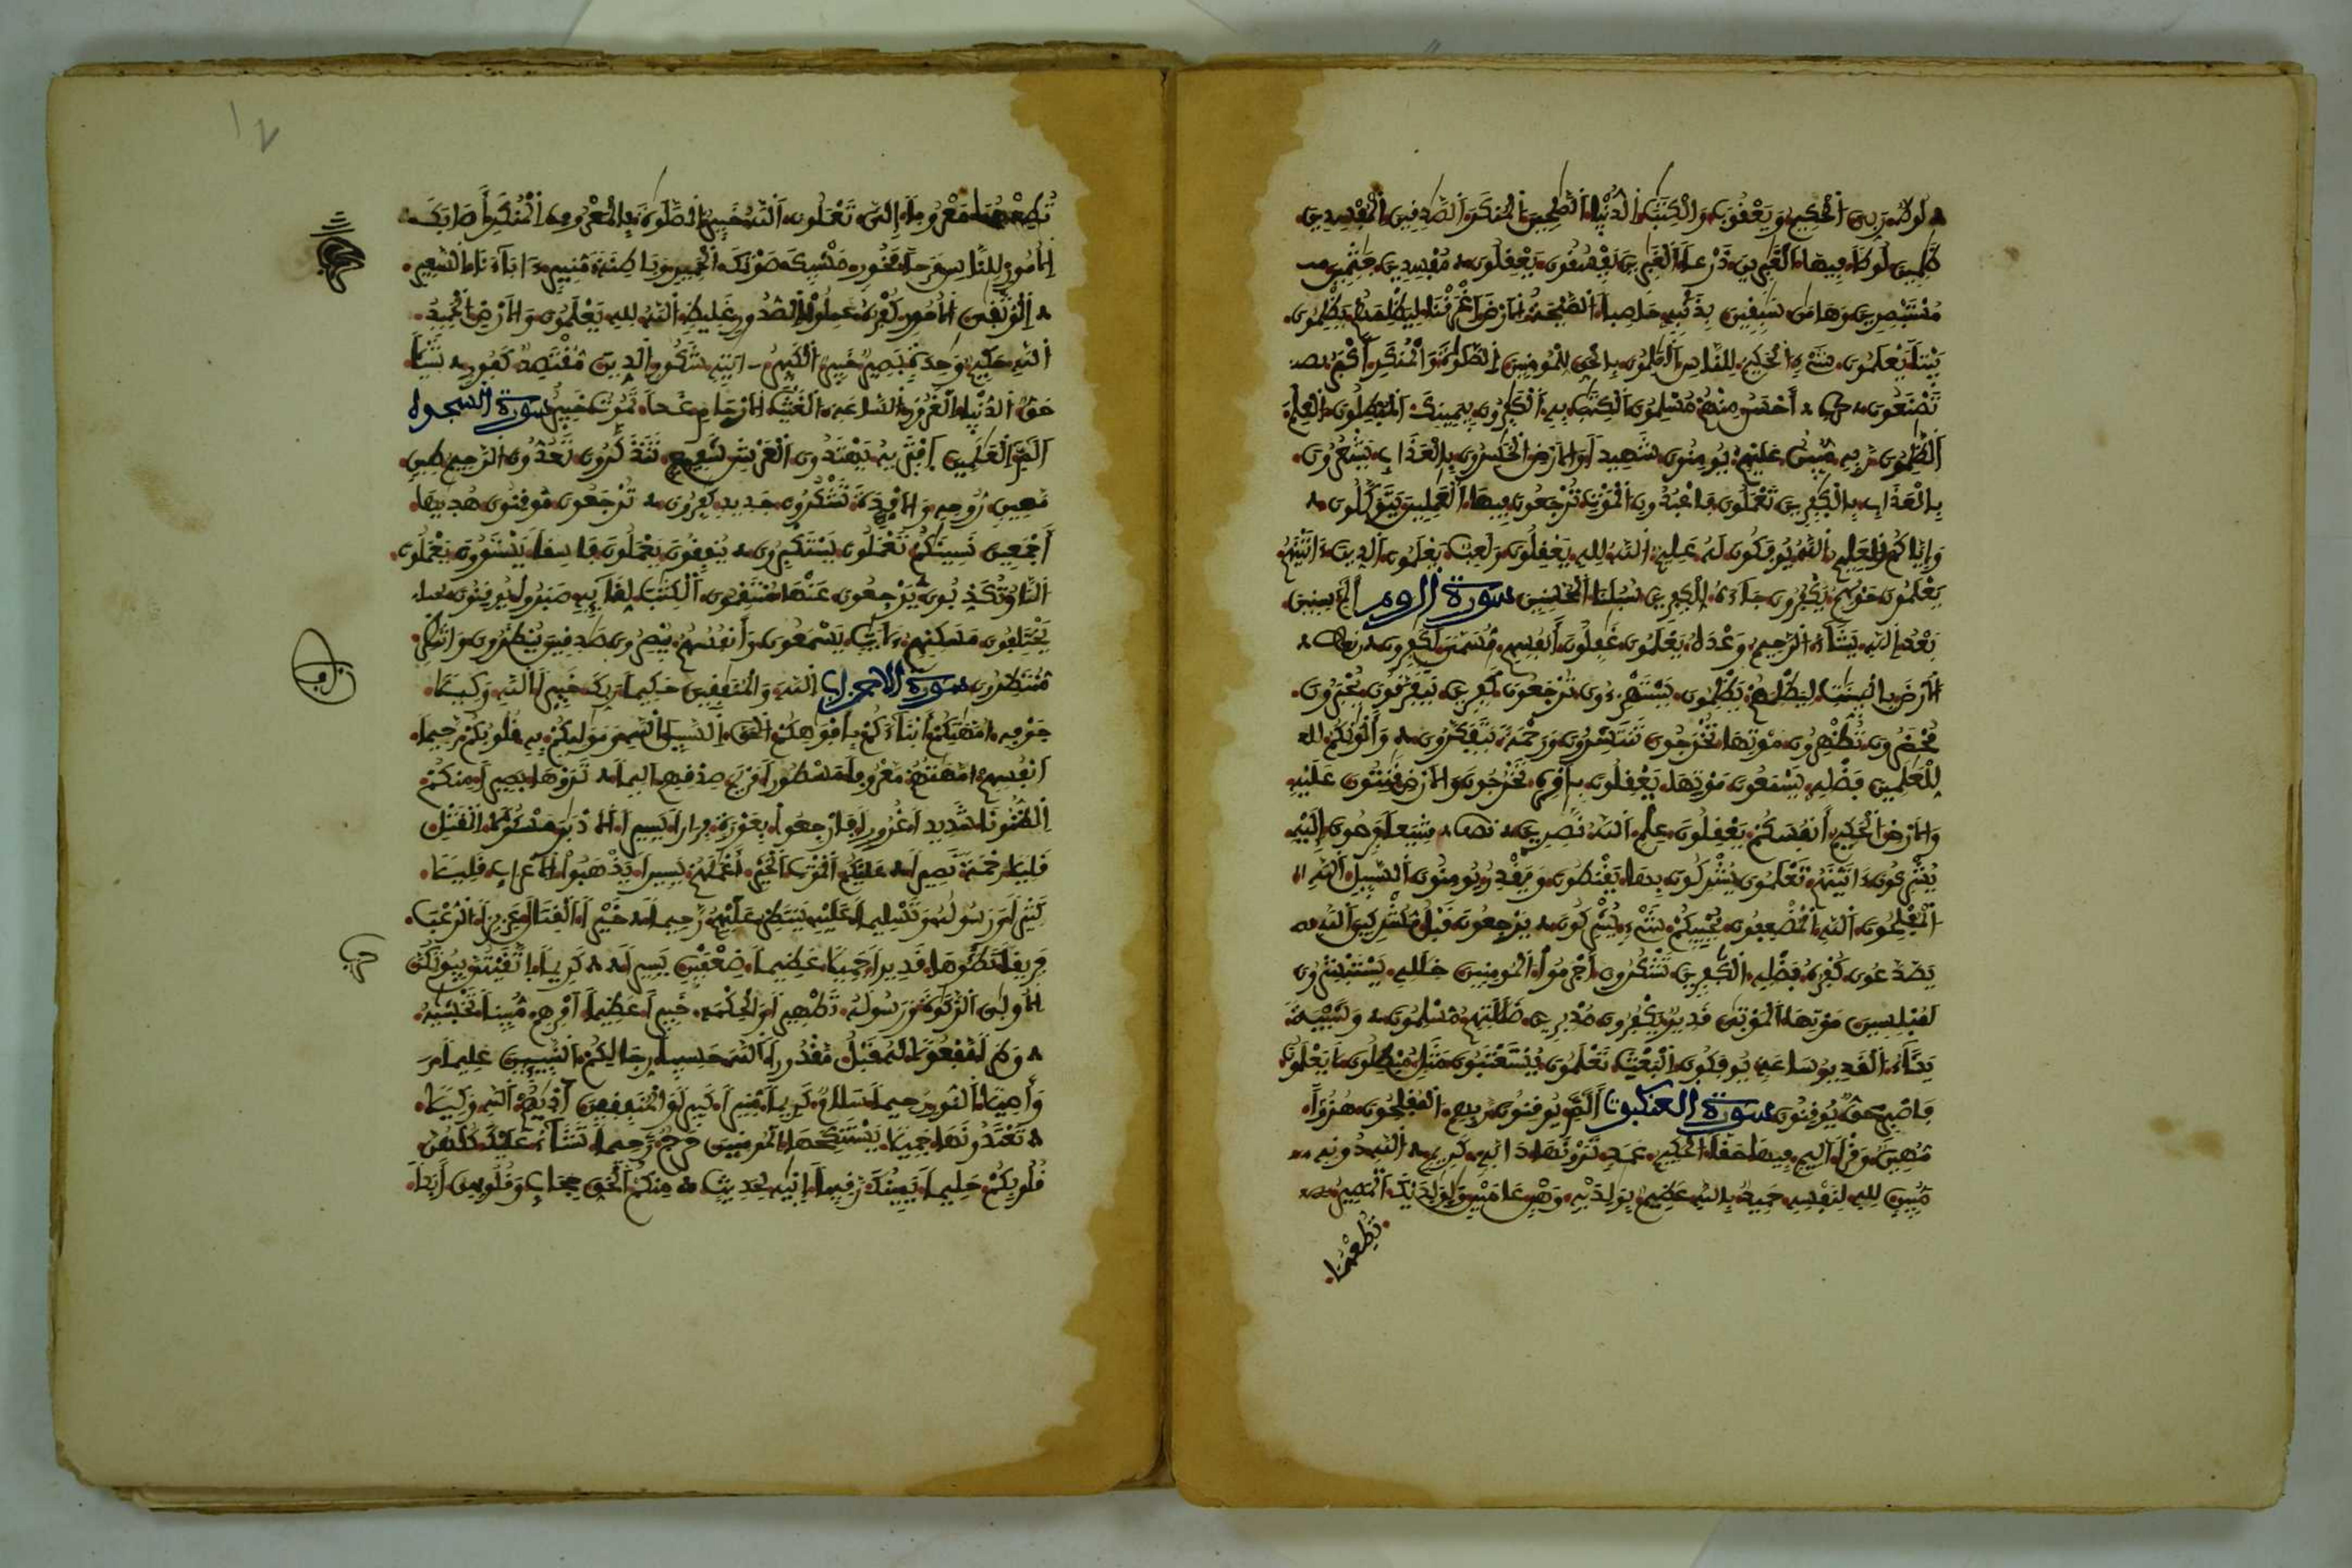 لوط ربي الحكيم ويعقوب والكتب الدنيا الصلحين المنكر الصدقين المفسدين
ظلمين لوطا فيها الغبرين ذرعا الغبرين يفسقون يعقلون مفسدين جثمين
مستبصرين وهامن سبقين بذنبه حاصبا الصيحة الارض اغرقنا ليظلمهم يظلمون
بيتا يعلمون شيء الحكيم للناس العلمون بالحق للمومنين الصلوة والمنكر أكبر
تصنعون أحسن منهم مسلمون الكتب به الكفرون بيمينك المبطلون العلم
الظلمون ربه مبين عليهم يومنون شهيدا والارض الخسرون بالعذاب يشعرون
بالعذاب بالكفرين تعملون فاعبدون الموت ترجعون فيها العملين يتوكلون
وإياكم العليم الله يوفكون له عليم الله لله يعقلون ولعب يعلمون الدين
يعلمون حولهم يكفرون جاءه للكفرين سبلنا المحسنين سورة الروم الم سنين
بعد الله يشاء الرحيم وعده يعلمون غفلون أنفسهم مسمى لكفرون
الارض بالبينت ليظلمهم يظلمون يستهزءون ترجعون كفرين يتفرقون يحبرون
محضرون تظهرون موتها تخرجون تنتشرون ورحمة يتفكرون وألونكم
للعلمين فضله يسمعون موتها يعقلون بأمره تخرجون والارض قنتون عليه
والارض الحكيم أنفسكم يعقلون علم الله نصرين شيعا فرحون إليه
يشركون ءاتينهم تعلمون يشركون بها يقنطون ويقدر يومنون السبيل الله
المفلحون الله المضعفون يحييكم شيء يشركون يرجعون قبل مشركين الله
يصدعون كفره فضله الكفرين تشكرون أجرموا المومنين خلله يستبشرون
لمبلسين موتها الموتى قدير يكفرون مدبرين ضللتهم مسلمون وشيبة
يشاء القدير ساعة يوفكون البعث تعلمون يستعتبون مثل مبطلون يعلمون
فاصبر حق يوقنون سورة العنكبوت الم يوقنون ربهم المفلحون هزؤا
مهين وقرا اليم فيها حقا الحكيم عمد ترونها دابة كريم الله دونه
مبين لله لنفسه حميد بالله عظيم بولديه وهن عامين ولولديك المصير
تطعهما
تطعهما معروفا إلي تعملون الله خبير الصلوة بالمعروف المنكر أصابك
الامور للناس مرحا فخور مشيك صوتك الحمير وباطنة منير ءاباءنا السعير
الوثقى الامور كفره عملوا الصدور غليظ الله لله يعلمون والارض الحميد
الله حكيم وحدة بصير خبير الكبير ءايته شكور الدين مقتصد كفور شيئا
حق الدنيا الغرور الساعة الغيث الارحام غدا تموت خبير سورة السجدة
الم العلمين افتريه يهتدون العرش شفيع تتذكرون تعدون الرحيم طين
مهين روحه والافدة تشكرون جديد كفرون ترجعون موقنون هديها
أجمعين نسينكم تعملون يستكبرون ينفقون يعملون فاسقا يستوون يعملون
النار تكذبون يرجعون عنها منتقمون الكتب لقائه صبروا يوقنون
يختلفون مسكنهم لايت يسمعون وأنفسهم يبصرون صدقين ينظرون وانتظر
منتظرون سورة الاحزاب الله والمنفقين حكيما ربك خبيرا الله وكيلا
جوفه امهتكم أبناءكم بأفوهكم الحق السبيل الله موليكم به قلوبكم رحيما
أنفسهم امهتهم معروفا مسطورا مريم صدقهم اليما تروها بصيرا منكم
الظنونا شديدا غرورا فارجعوا بعورة فرارا يسيرا الادبر مسئولا القتل
قليلا رحمة نصيرا عليكم الموت الخير أعملهم يسيرا يذهبوا الاعراب قليلا
كثيرا ورسوله وتسليما عليه ينتظر عليهم رحيما خيرا القتال عزيزا الرعب
فريقا تطئوها قديرا جميلا عظيما ضعفين يسيرا كريما اتقيتن بيوتكن
الاولى الزكوة ورسوله تطهيرا والحكمة خبيرا عظيما أمرهم مبينا تخشيه
وطرا مفعولا له قبل مقدورا الله حسيبا رجالكم النبيين عليما
وأصيلا النور رحيما سلام كريما منيرا كبيرا والمنفقين أذيهم الله وكيلا
تعتدونها جميلا يستنكحها المومنين حرج رحيما تشاء عليك كلهن
قلوبكم حليما يمينك رقيبا إنيه لحديث منكم الحق حجاب وقلوبهن أبدا